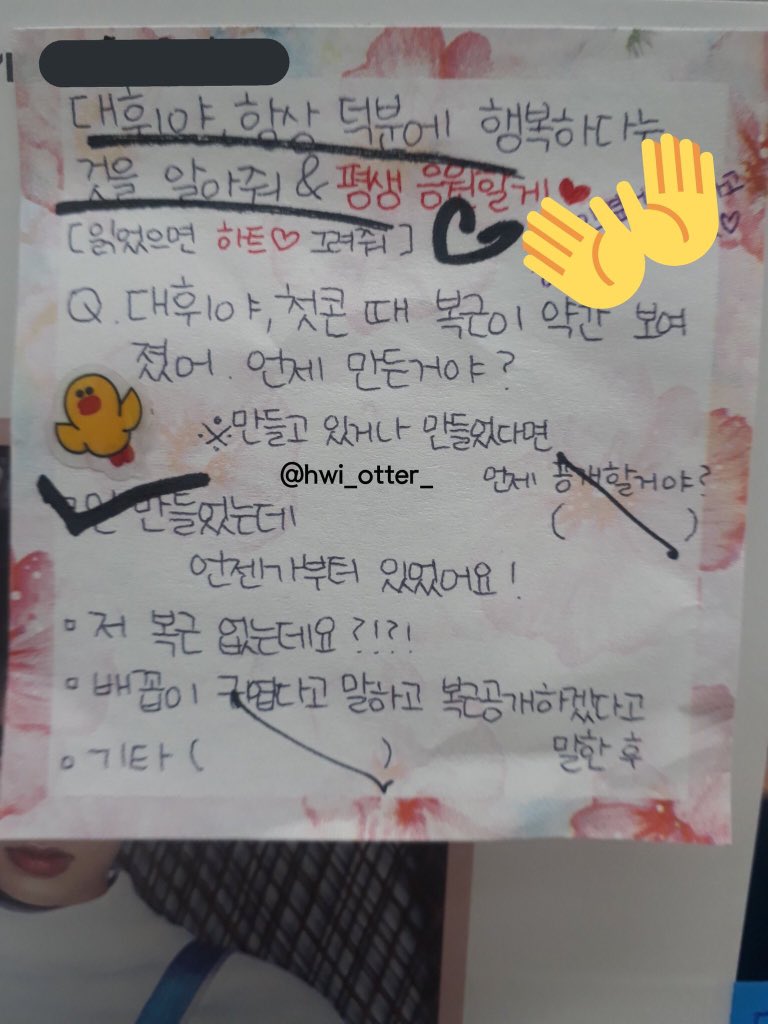 대휘야, 항상 덕분에 행복하다는
것을 알아줘 & 평생 응원할게♥
[읽었으면 하트♡ 그려줘]
Q. 대휘야, 첫콘 때 복근이 약간 보여
졌어. 언제 만든거야?
※만들고 있거나 만들었다면
언제 공개할거야?
( )
@hwi_otter_
안 만들었는데
언젠가부터 있었어요!
▫저 복근 없는데요?!?!
▫배꼽이 귀엽다고 말하고 복근공개하겠다고
말한 후
▫기타 ( )